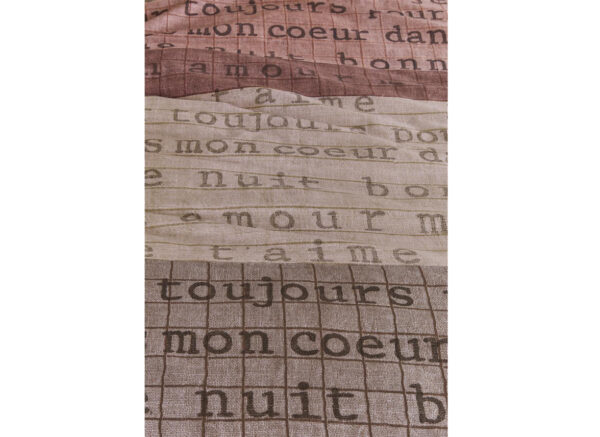 toujours pour
mon coeur dan
nuit bonn
amou
t'aime
toujours pou
s mon coeur da
e nuit bon
amour m
e t'aime
toujours
mon coeur
nuit b